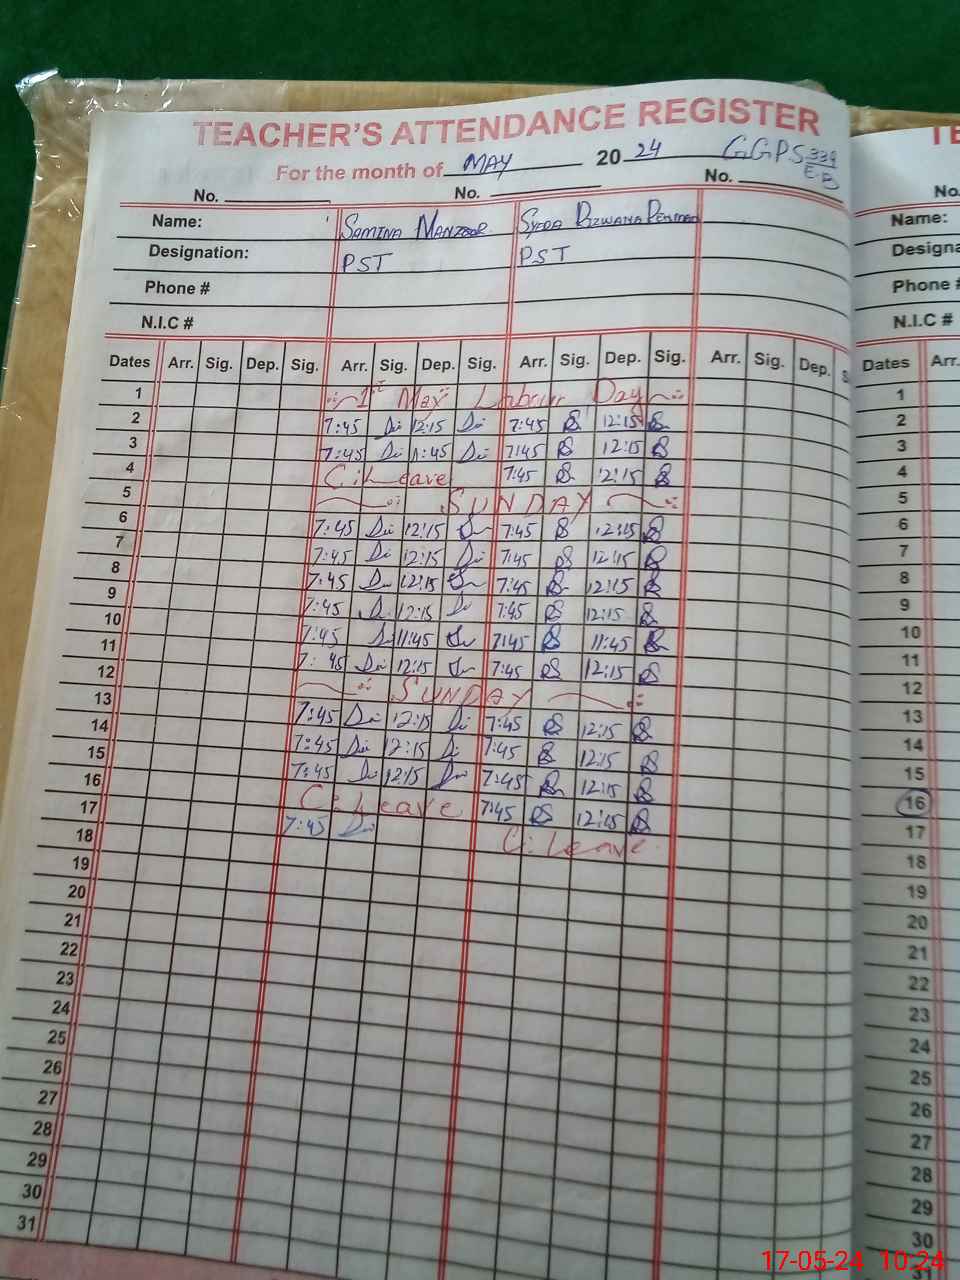 TEACHER'S ATTENDANCE REGISTER
For the month of MAY 2024 GGPS 339/E.B
No. No. No.
Name: SAMINA MANZOOR SYEDA RIZWANA
Designation: PST PST
Phone #
N.I.C #
Dates Arr. Sig. Dep. Sig. Arr. Sig. Dep. Sig. Arr. Sig. Dep. Sig. Arr. Sig. Dep. S
1 1st May Labour Day
2 7:45 12:15 7:45 12:15
3 7:45 11:45 7:45 12:15
4 C. Leave 7:45 12:15
5 SUNDAY
6 7:45 12:15 7:45 12:15
7 7:45 12:15 7:45 12:15
8 7:45 12:15 7:45 12:15
9 7:45 12:15 7:45 12:15
10 7:45 11:45 7:45 11:45
11 7:45 12:15 7:45 12:15
12 SUNDAY
13 7:45 12:15 7:45 12:15
14 7:45 12:15 7:45 12:15
15 7:45 12:15 7:45 12:15
16 C. Leave 7:45 12:15
17 7:45 C. Leave
18
19
20
21
22
23
24
25
26
27
28
29
30
31
TE
No.
Name:
Designa
Phone #
N.I.C #
Dates Arr.
1
2
3
4
5
6
7
8
9
10
11
12
13
14
15
16
17
18
19
20
21
22
23
24
25
26
27
28
29
30
17-05-24 10:24